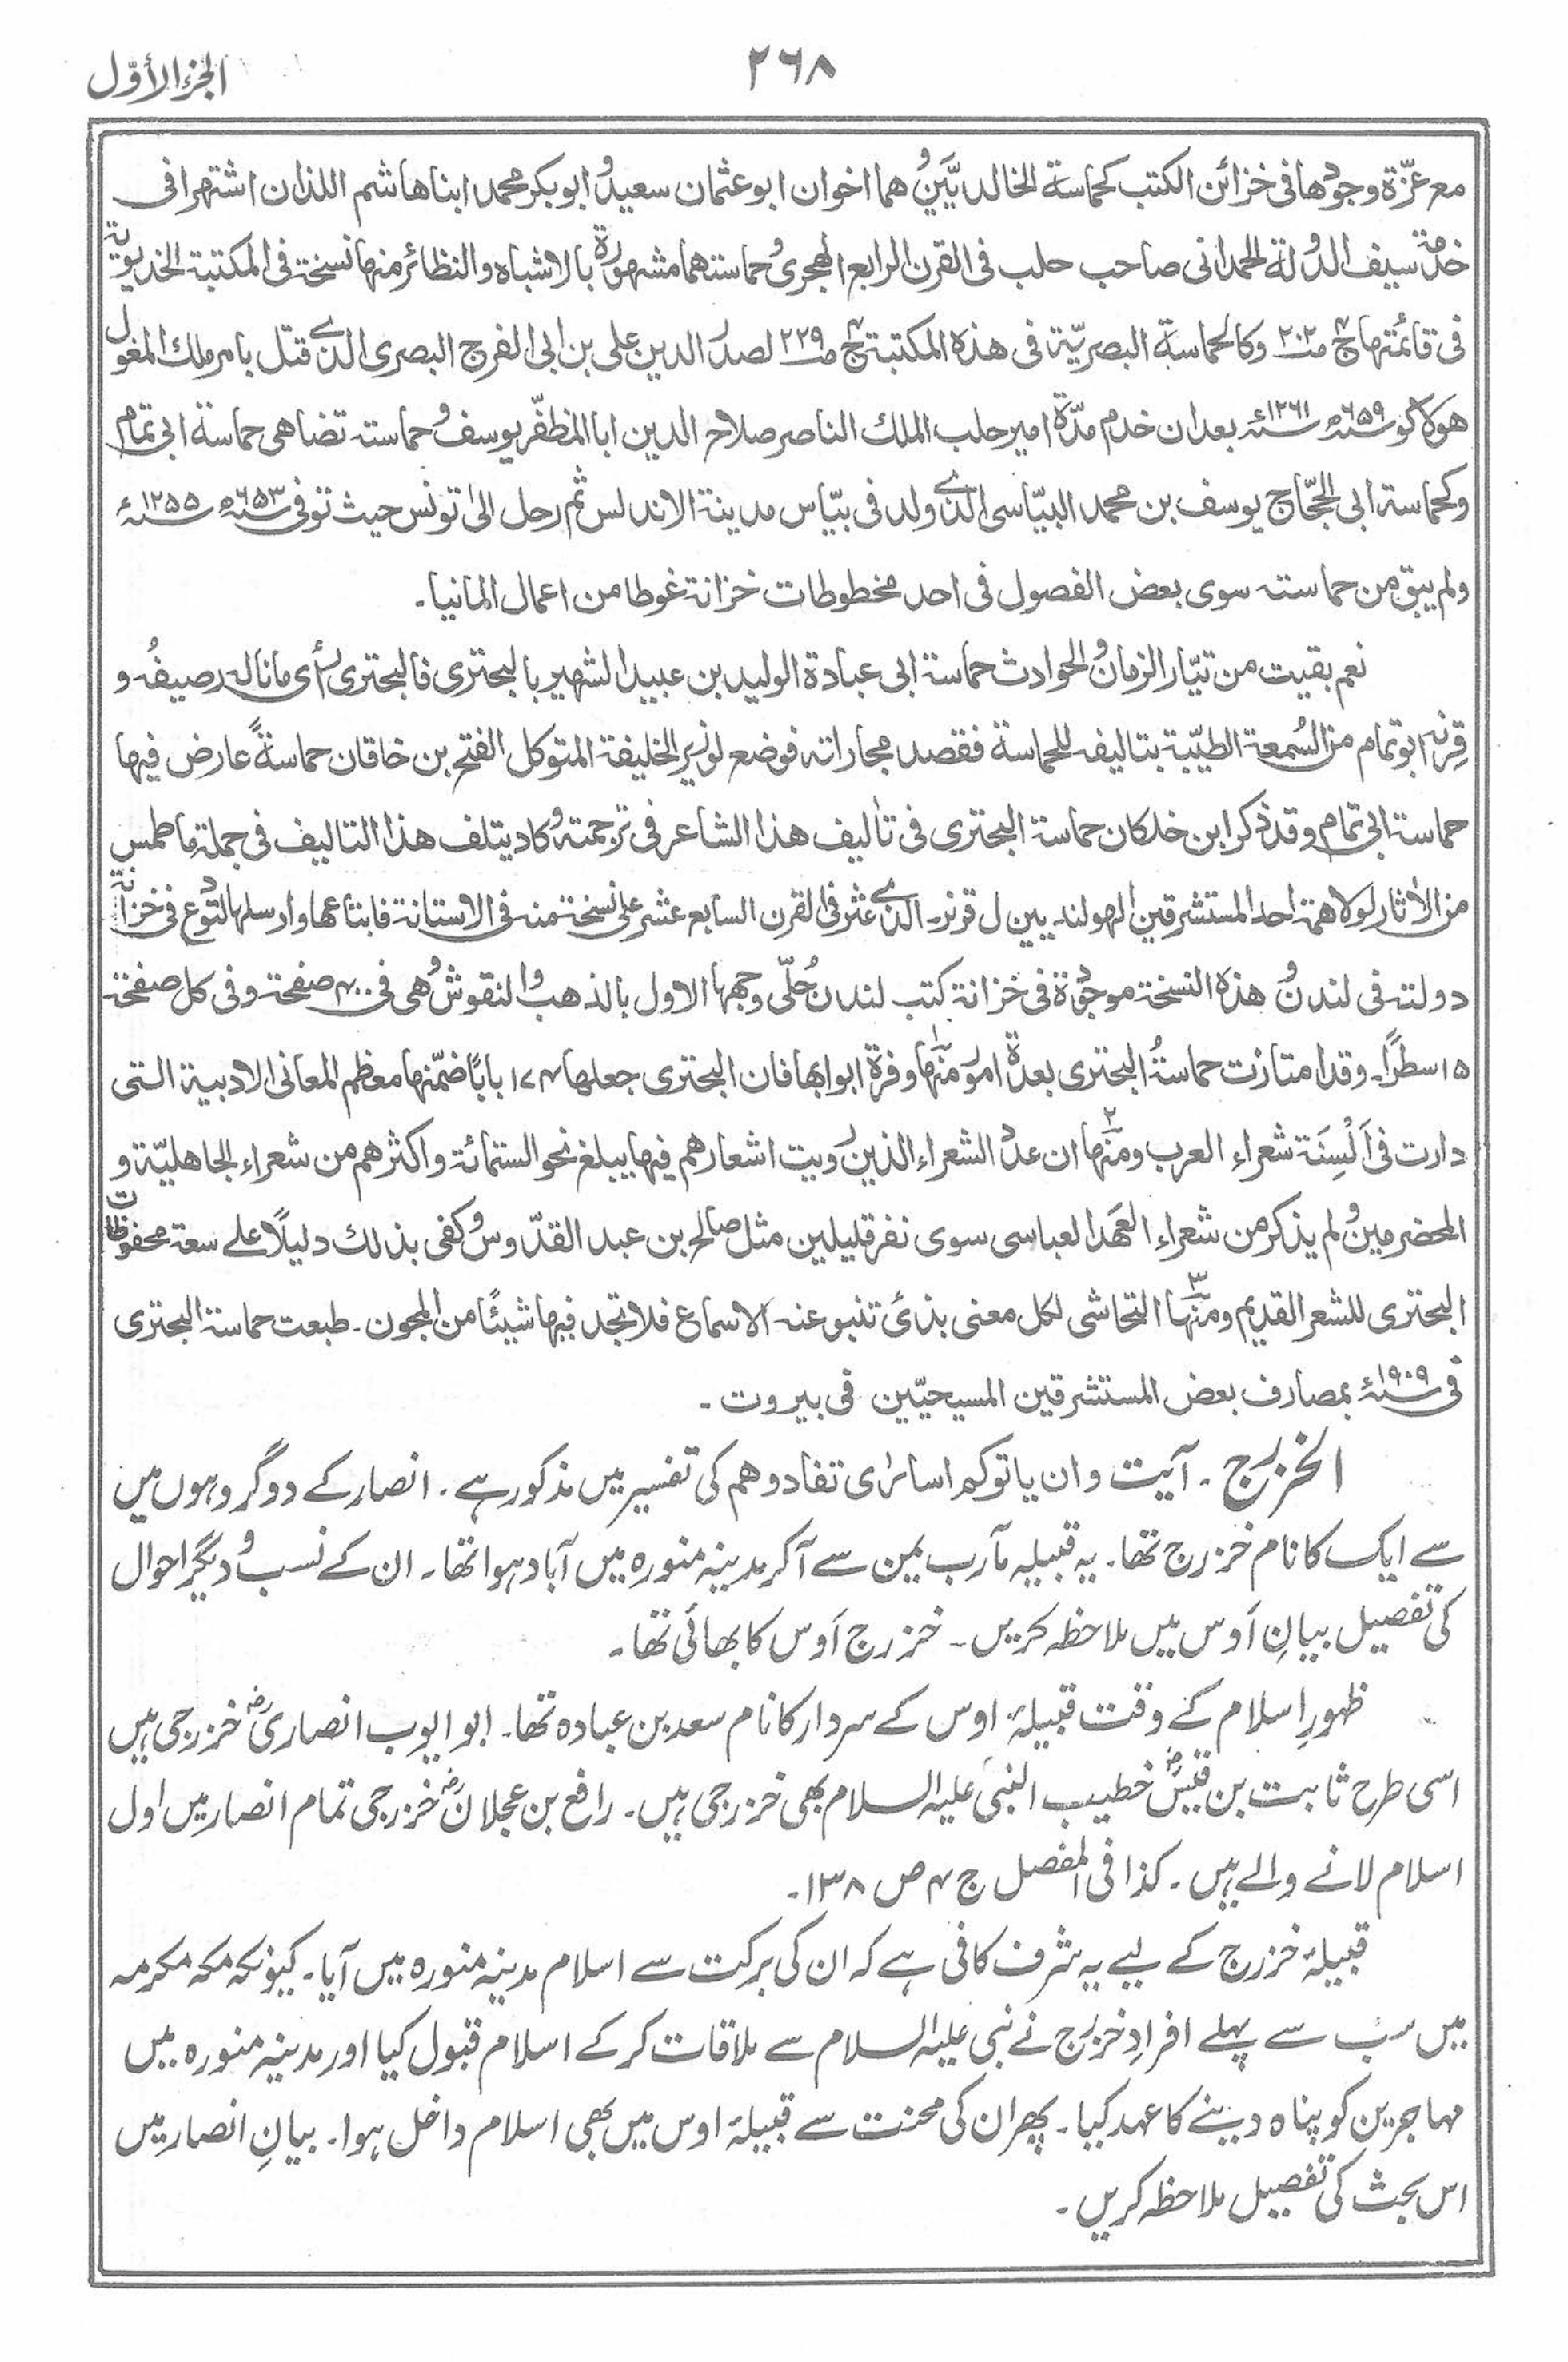 ٢٦٨
الجزء الأوّل
مع عزّة وجودها فى خزائن الكتب كحماسة الخالديَّين وهما اخوان ابوعثمان سعيد وابوبكر محمد ابنا هاشم اللذان اشتهرا فى
خدمة سيف الدولة الحمدانى صاحب حلب فى القرن الرابع الهجرى وحماستهما مشهورة بالاشباه والنظائر منها نسخة فى المكتبة الخديوية
فى قائمتها ج ٤ ص ٢٠٢ وكالحماسة البصريّة فى هذه المكتبة ج ٤ ص ٢٢٩ لصدر الدين على بن ابى الفرج البصرى الذى قتل بامر ملك المغول
هولاكو سنة ٦٥٩ھ سنة ١٢٦١ء بعد ان خدم مدّة امير حلب الملك الناصر صلاح الدين ابا المظفّر يوسف وحماسته تضاهى حماسة ابى تمام
وكحماسة ابى الحجّاج يوسف بن محمد البيّاسى الذى ولد فى بيّاس مدينة الاندلس ثم رحل الىٰ تونس حيث توفى سنة ٦٥٣ھ سنة ١٢٥٥ء
ولم يبق من حماسته سوى بعض الفصول فى احد مخطوطات خزانة غوطا من اعمال المانيا۔
نعم بقيت من تيّار الزمان والحوادث حماسة ابى عبادة الوليد بن عبيد الشهير بالبحترى فالبحترى رأى ما ناله رصيفُه و
قِرنه ابوتمام من السُمعة الطيّبة بتاليفه للحماسة فقصد مجاراته فوضع لوزير الخليفة المتوكل الفتح بن خاقان حماسةً عارض فيها
حماسة ابى تمام وقد ذكر ابن خلكان حماسة البحترى فى تأليف هذا الشاعر فى ترجمته وكاد يتلف هذا التاليف فى جملة ما طمس
من الأثار لولا همة احد المستشرقين الهولنديين ل قرنر۔ الذى عثر فى القرن السابع عشر على نسخة منه فى الاستانة فابتاعها وارسلها لتودع فى خزانة
دولته فى لندن وهذه النسخة موجودة فى خزانة كتب لندن حُلّى وجهها الاول بالذهب والنقوش وهى فى ٤٠٠ صفحة وفى كل صفحة
١٥ سطرًا۔ وقد امتازت حماسةُ البحترى بعدة امور منها ١ وفرة ابوابها فان البحترى جعلها ١٧٤ بابًا ضمّنها معظم المعانى الادبية التى
دارت فى اَلْسِنَة شعراء العرب ومنها ٢ ان عدد الشعراء الذين رويت اشعارهم فيها يبلغ نحو الستمائة واكثرهم من شعراء الجاهليّة و
المخضرمين ولم يذكر من شعراء العهد العباسى سوى نفر قليلين مثل صالح بن عبد القدّوس وكفى بذلك دليلًا على سعة محفوظات
البحترى للشعر القديم ومنها ٣ التحاشى لكل معنى بذئ تنبو عنه الاسماع فلا تجد فيها شيئًا من المجون۔ طبعت حماسة البحترى
فى سنة ١٩٠٩ء بمصارف بعض المستشرقين المسيحيّين فى بيروت۔
الخزرج ۔ آیت وان یاتوکم اسارٰی تفادوھم کی تفسیر میں مذکور ہے۔ انصار کے دو گروہوں میں
سے ایک کا نام خزرج تھا۔ یہ قبیلہ مآرب یمن سے آکر مدینہ منورہ میں آباد ہوا تھا۔ ان کے نسب و دیگر احوال
کی تفصیل بیانِ اَوس میں ملاحظہ کریں۔ خزرج اَوس کا بھائی تھا۔
ظہورِ اسلام کے وقت قبیلۂ اوس کے سردار کا نام سعد بن عبادہ تھا۔ ابو ایوب انصاریؓ خزرجی ہیں
اسی طرح ثابت بن قیسؓ خطیب النبی علیہ السلام بھی خزرجی ہیں۔ رافع بن عجلانؓ خزرجی تمام انصار میں اول
اسلام لانے والے ہیں۔ کذا فی المفصل ج ۴ ص ۱۳۸۔
قبیلۂ خزرج کے لیے یہ شرف کافی ہے کہ ان کی برکت سے اسلام مدینہ منورہ میں آیا۔ کیونکہ مکہ مکرمہ
میں سب سے پہلے افرادِ خزرج نے نبی علیہ السلام سے ملاقات کرکے اسلام قبول کیا اور مدینہ منورہ میں
مہاجرین کو پناہ دینے کا عہد کیا۔ پھر ان کی محنت سے قبیلۂ اوس میں بھی اسلام داخل ہوا۔ بیانِ انصار میں
اس بحث کی تفصیل ملاحظہ کریں۔